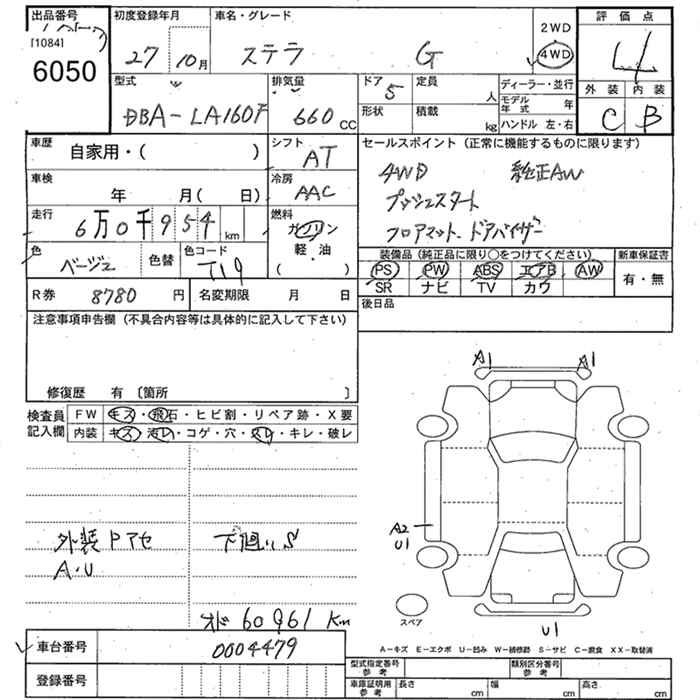 出品番号 初度登録年月 車名・グレード 2WD 評価点
[1084] 27 10月 ステラ G 4WD 4
6050
型式 排気量 ドア 定員 ディーラー・並行 外装 内装
DBA-LA160F 660CC 5 人 モデル年式 年 C B
形状 積載 kg ハンドル 左・右
車歴 自家用・( ) シフト AT セールスポイント(正常に機能するものに限ります)
車検 年 月( 日) 冷房 AAC 4WD 純正AW
走行 6万0千954km 燃料 ガソリン プッシュスタート
軽・油 ( ) フロアマット、ドアバイザー
色 ベージュ 色替 色コード T19
装備品(純正品に限り○をつけてください) 新車保証書
PS PW ABS エアB AW 有・無
SR ナビ TV カワ
R券 8780円 名変期限 月 日 後日品
注意事項申告欄(不具合内容等は具体的に記入して下さい)
修復歴 有〔箇所 〕
検査員記入欄 FW キズ・飛石・ヒビ割・リペア跡・X要
内装 キズ・汚レ・コゲ・穴・スレ・キレ・破レ
A1 A1
A2
U1
外装 Pアセ 下廻りS
A・U
スペア
U1
オド 60961 Km
A-キズ E-エクボ U-凹み W-補修跡 S-サビ C-腐食 XX-取替済
車台番号 0004479
型式指定番号 参考 類別区分番号 参考
登録番号
車庫証明用 参考 長さ cm 幅 cm 高さ cm